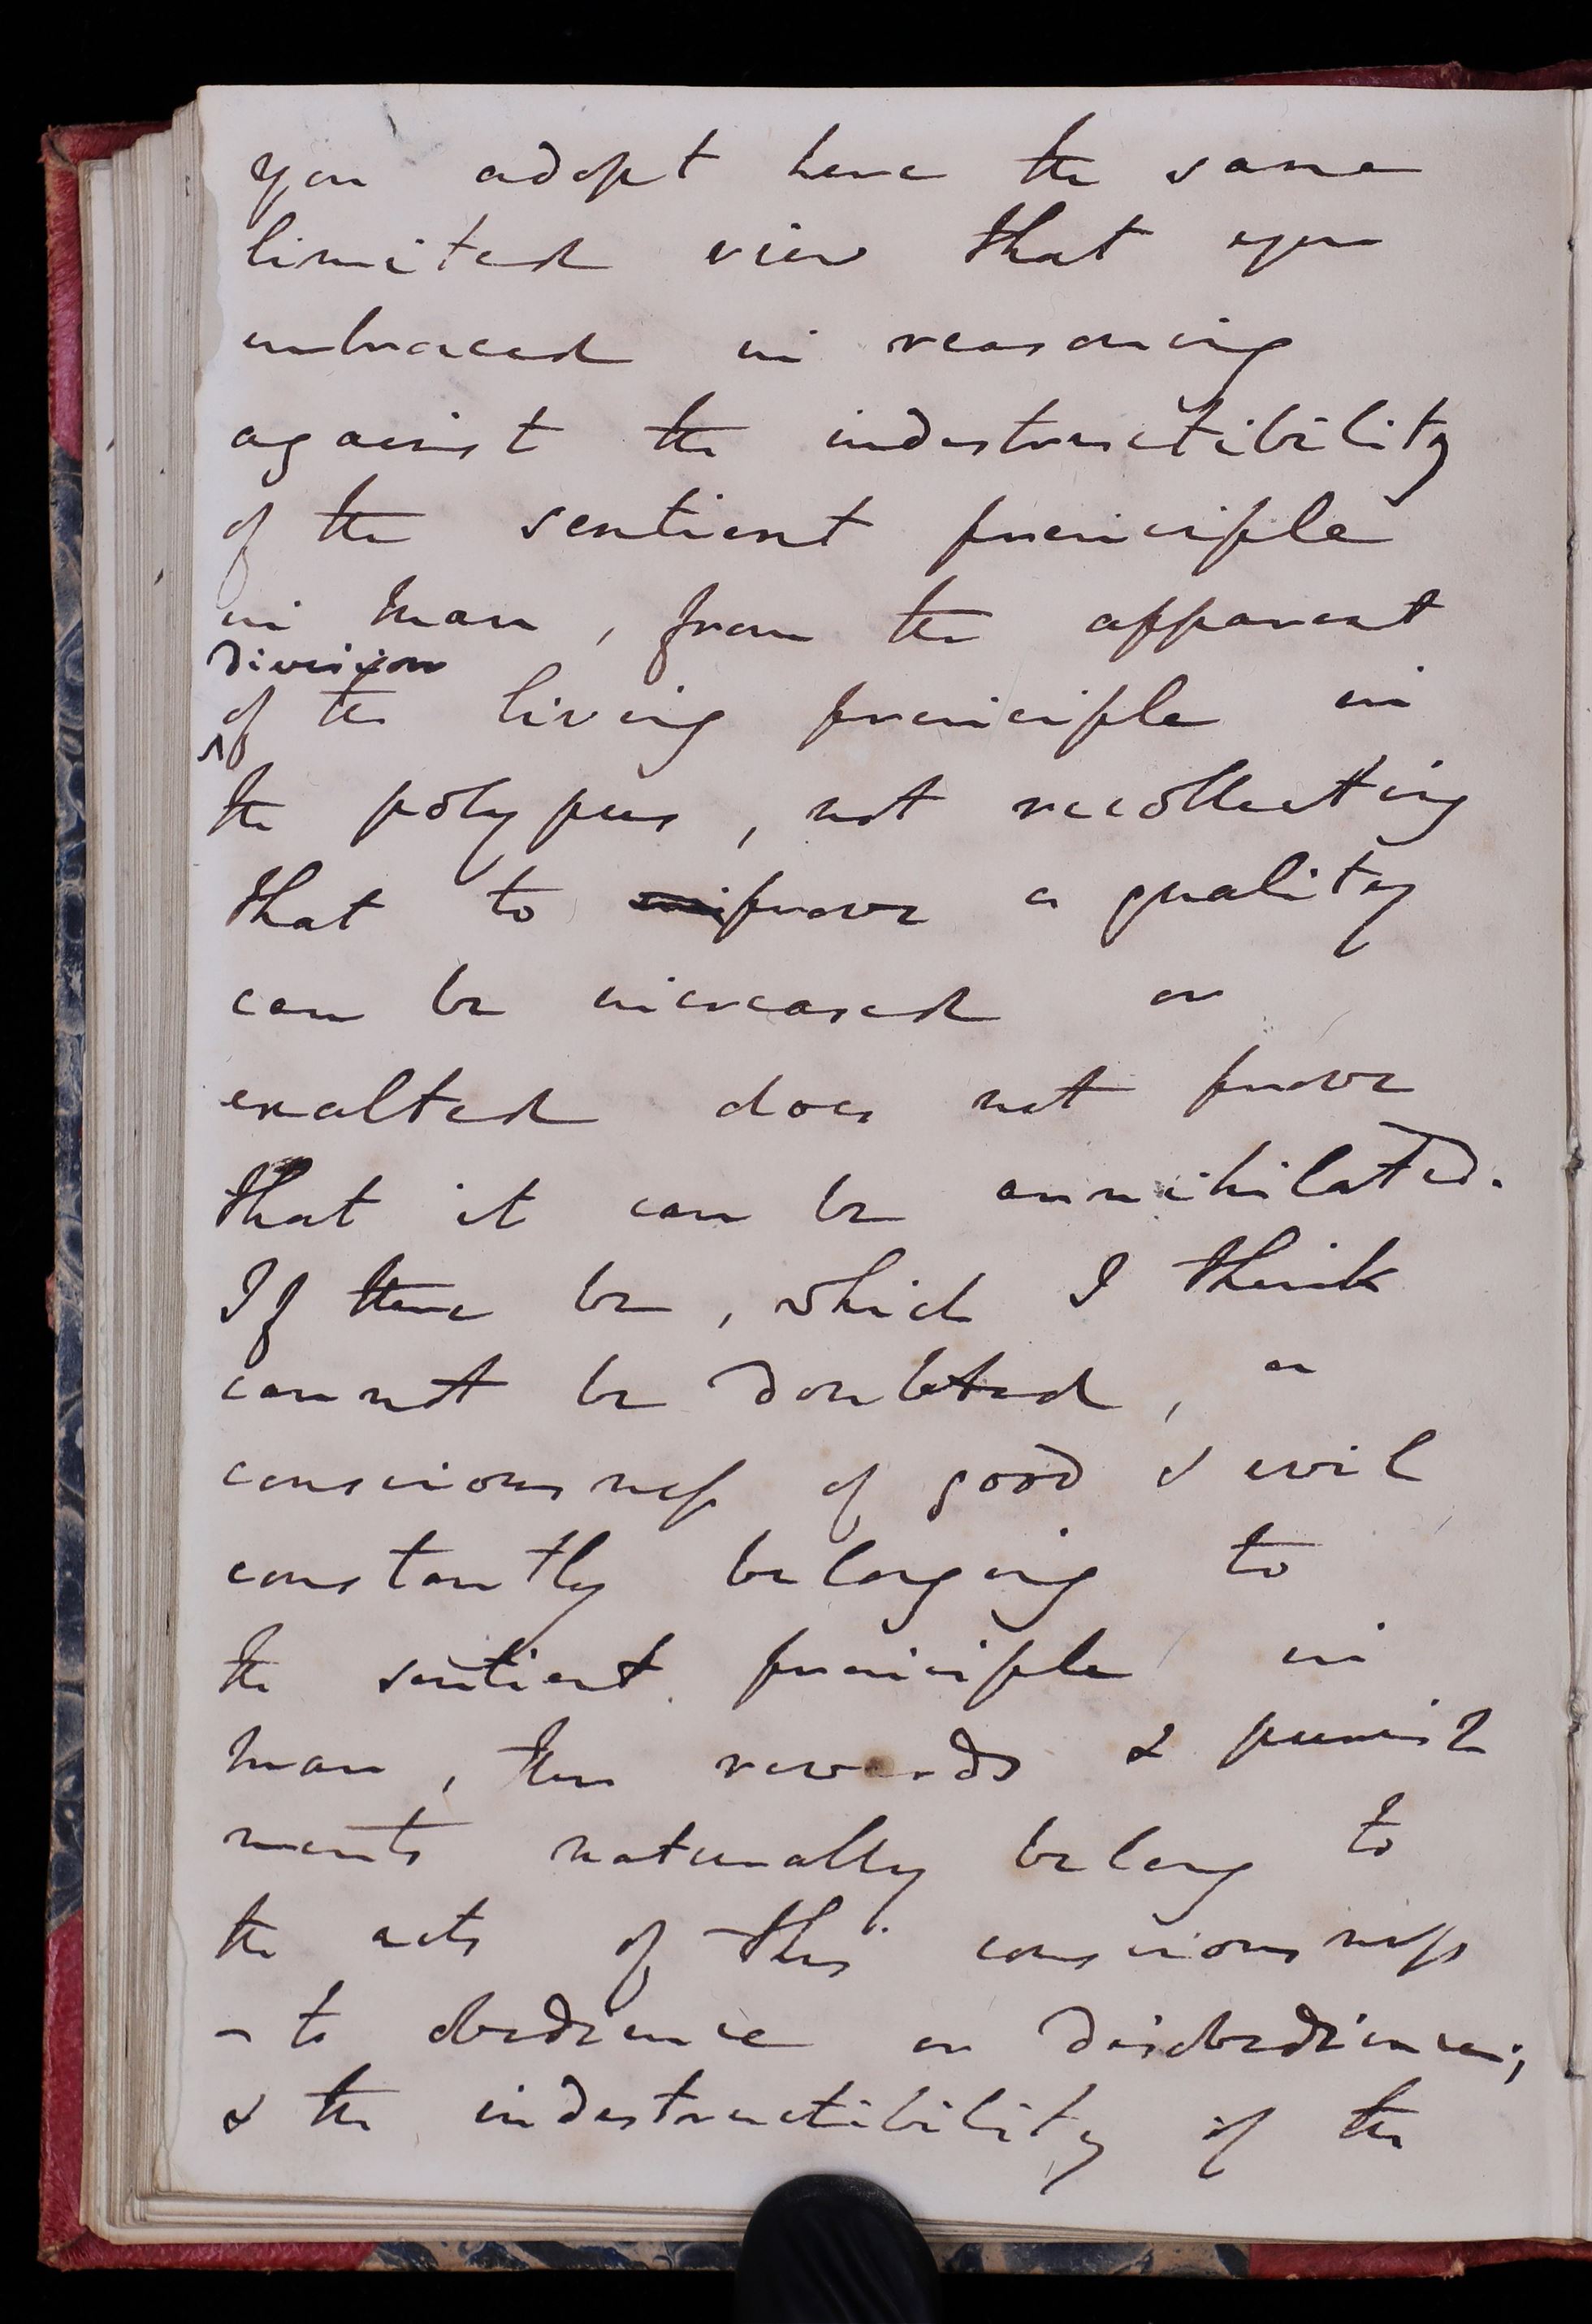 you adopt here the same
limited view that you
embraced in reasoning
against the indestructibility
of the sentient principle
in man, from the apparent
division
of the living principle in
the polypus, not recollecting
that to prove a quality
can be increased or
exalted does not prove
that it can be annihilated.
If there be, which I think
cannot be doubted, a
consciousness of good & evil
constantly belonging to
the sentient principle in
man, then rewards & punish
ments naturally belong to
the acts of this consciousness
- to obedience or disobedience;
& the indestructibility of the